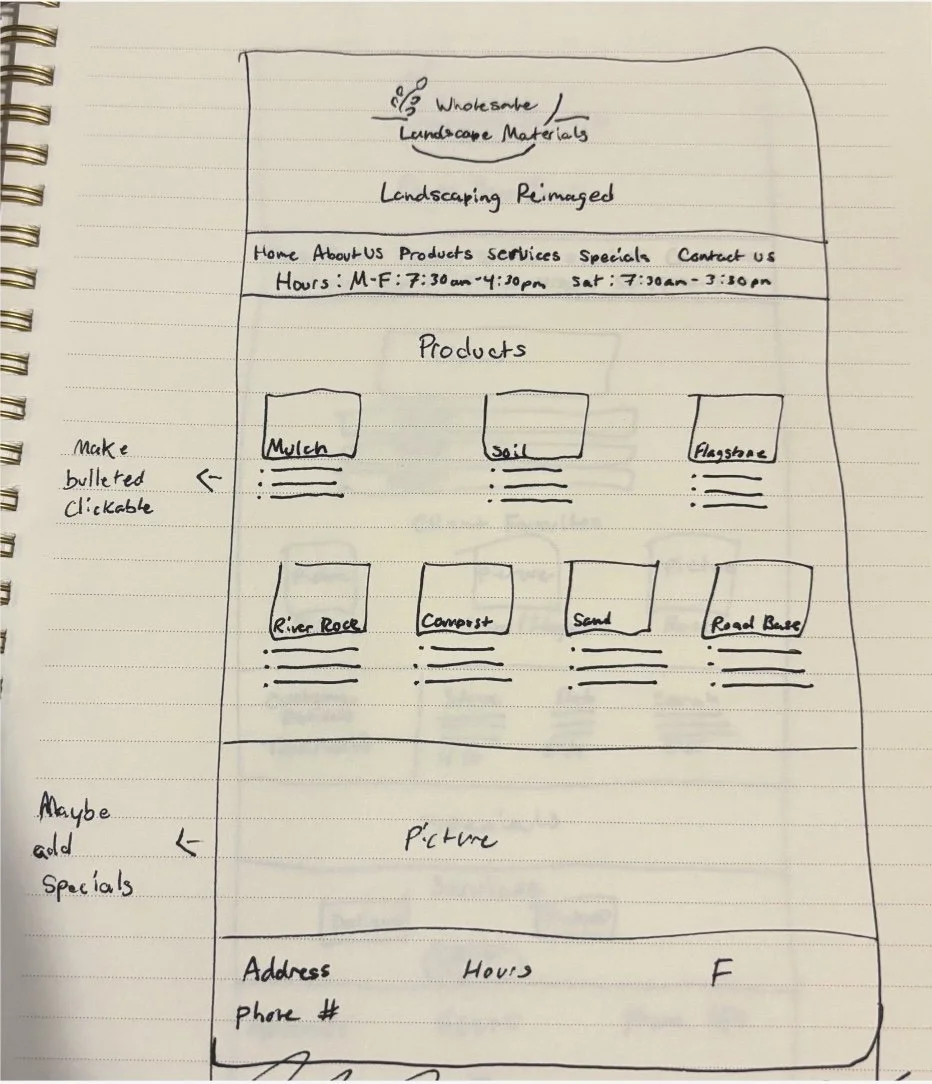 Wholesale
Landscape Materials
Landscaping Reimaged
Home About Us Products Services Specials Contact us
Hours : M-F : 7:30am-4:30pm Sat : 7:30am - 3:30pm
Products
Mulch Soil Flagstone
Make
bulleted
Clickable
River Rock Compost Sand Road Base
Maybe
add
Specials
Picture
Address Hours F
Phone #